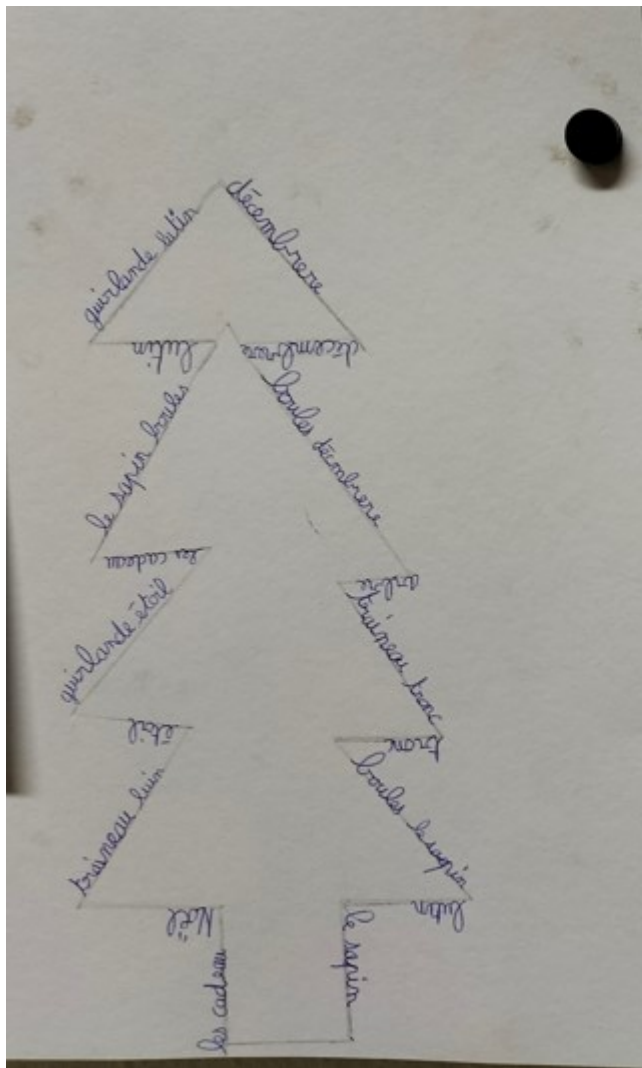 guirlande lutin
décembrere
lutin
décembrere
le sapin boules
boules décembrere
les cadeau
arbre
guirlande étoil
traineau tronc
étoil
tronc
traineau luin
boules le sapin
Noël
lutin
les cadeau
le sapin